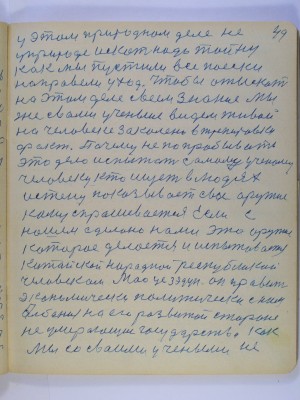 49
у этом природном деле не
природе искот надо тайну
как мы пустили все поески
направели уход. Чтобы отыскат
на этом деле своем Знание Мы
же свами ученыие видем живой
на человеке Закалено втренеровко
факт. Почему не попробывать
это дело испытат самому ученому
человеку кто ищет в людях
истену показывает свае оружие
каму спрашивается Если с
нашем сделано нами это оружие
которае делается и испытоваит
Китайской народной республикай
человеком Мао це Зэдун. он правит
экономически политически сним
на его развитой стороне
не умерающие государство. Как
Мы со своими ученыеми не